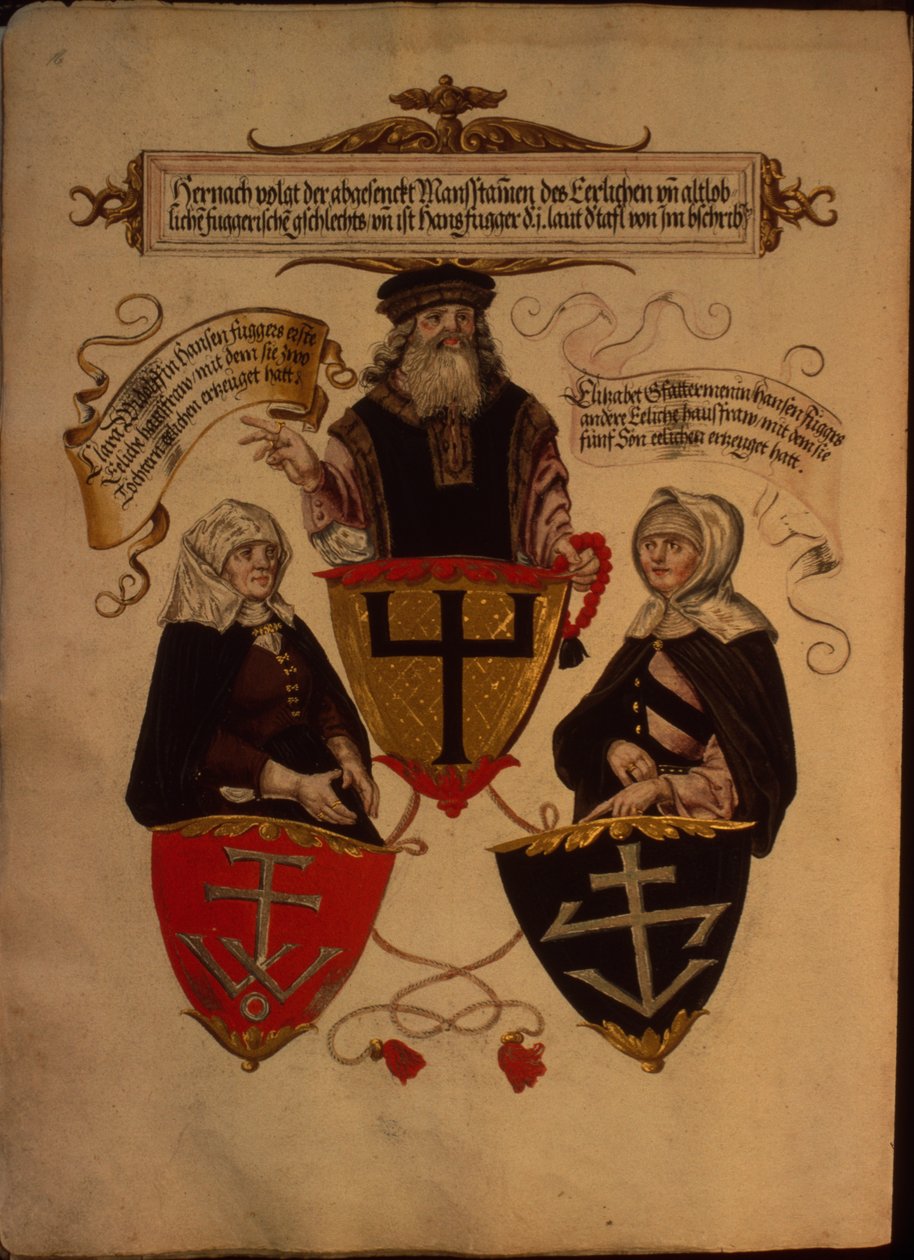 16
Hernach volgt der abgesenckt Mansstam̄en des Eerlichen vn̄ altlob⸗
lichē fuggerischē gschlechts / vn̄ ist Hans fugger d.j. laut d'tafl von jm bschribē
Clara Widolffin Hansen fuggers erste
Eeliche haussfraw / mit dem sie zwo
Tochtern eelichen erzeuget hatt.
Elizabet Gfattermenin hansen fuggers
andere Eeliche haussfraw / mit dem sie
fünf Sön eelichen erzeuget hatt.